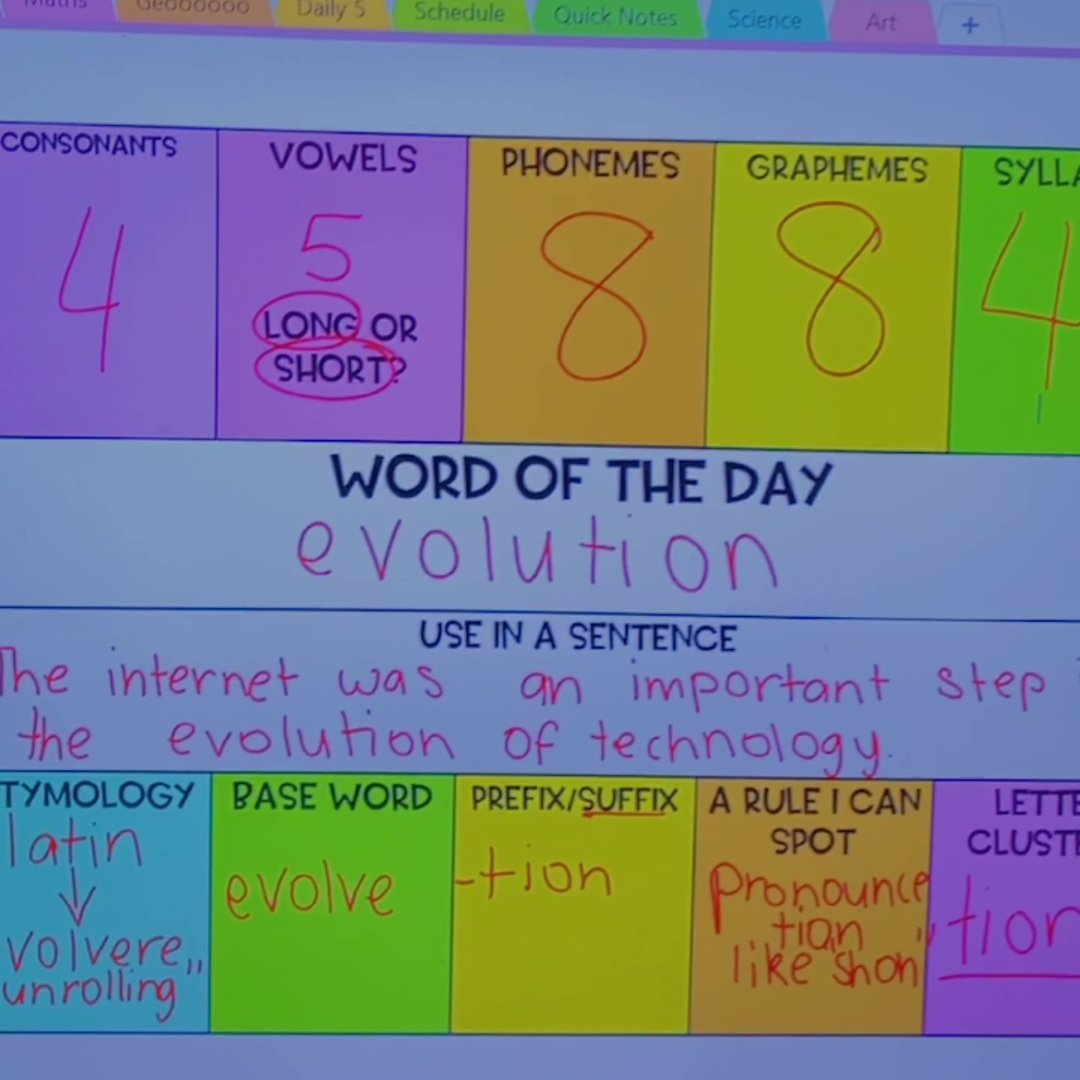 Maths Geoooooo Daily 5 Schedule Quick Notes Science Art +
CONSONANTS VOWELS PHONEMES GRAPHEMES SYLLA
4 5 8 8 4
LONG OR
SHORT?
WORD OF THE DAY
evolution
USE IN A SENTENCE
The internet was an important step
the evolution of technology.
TYMOLOGY
latin
volvere
"unrolling
BASE WORD
evolve
PREFIX/SUFFIX
-tion
A RULE I CAN
SPOT
pronounce
tion
like "shon
LETTE
CLUSTE
tion